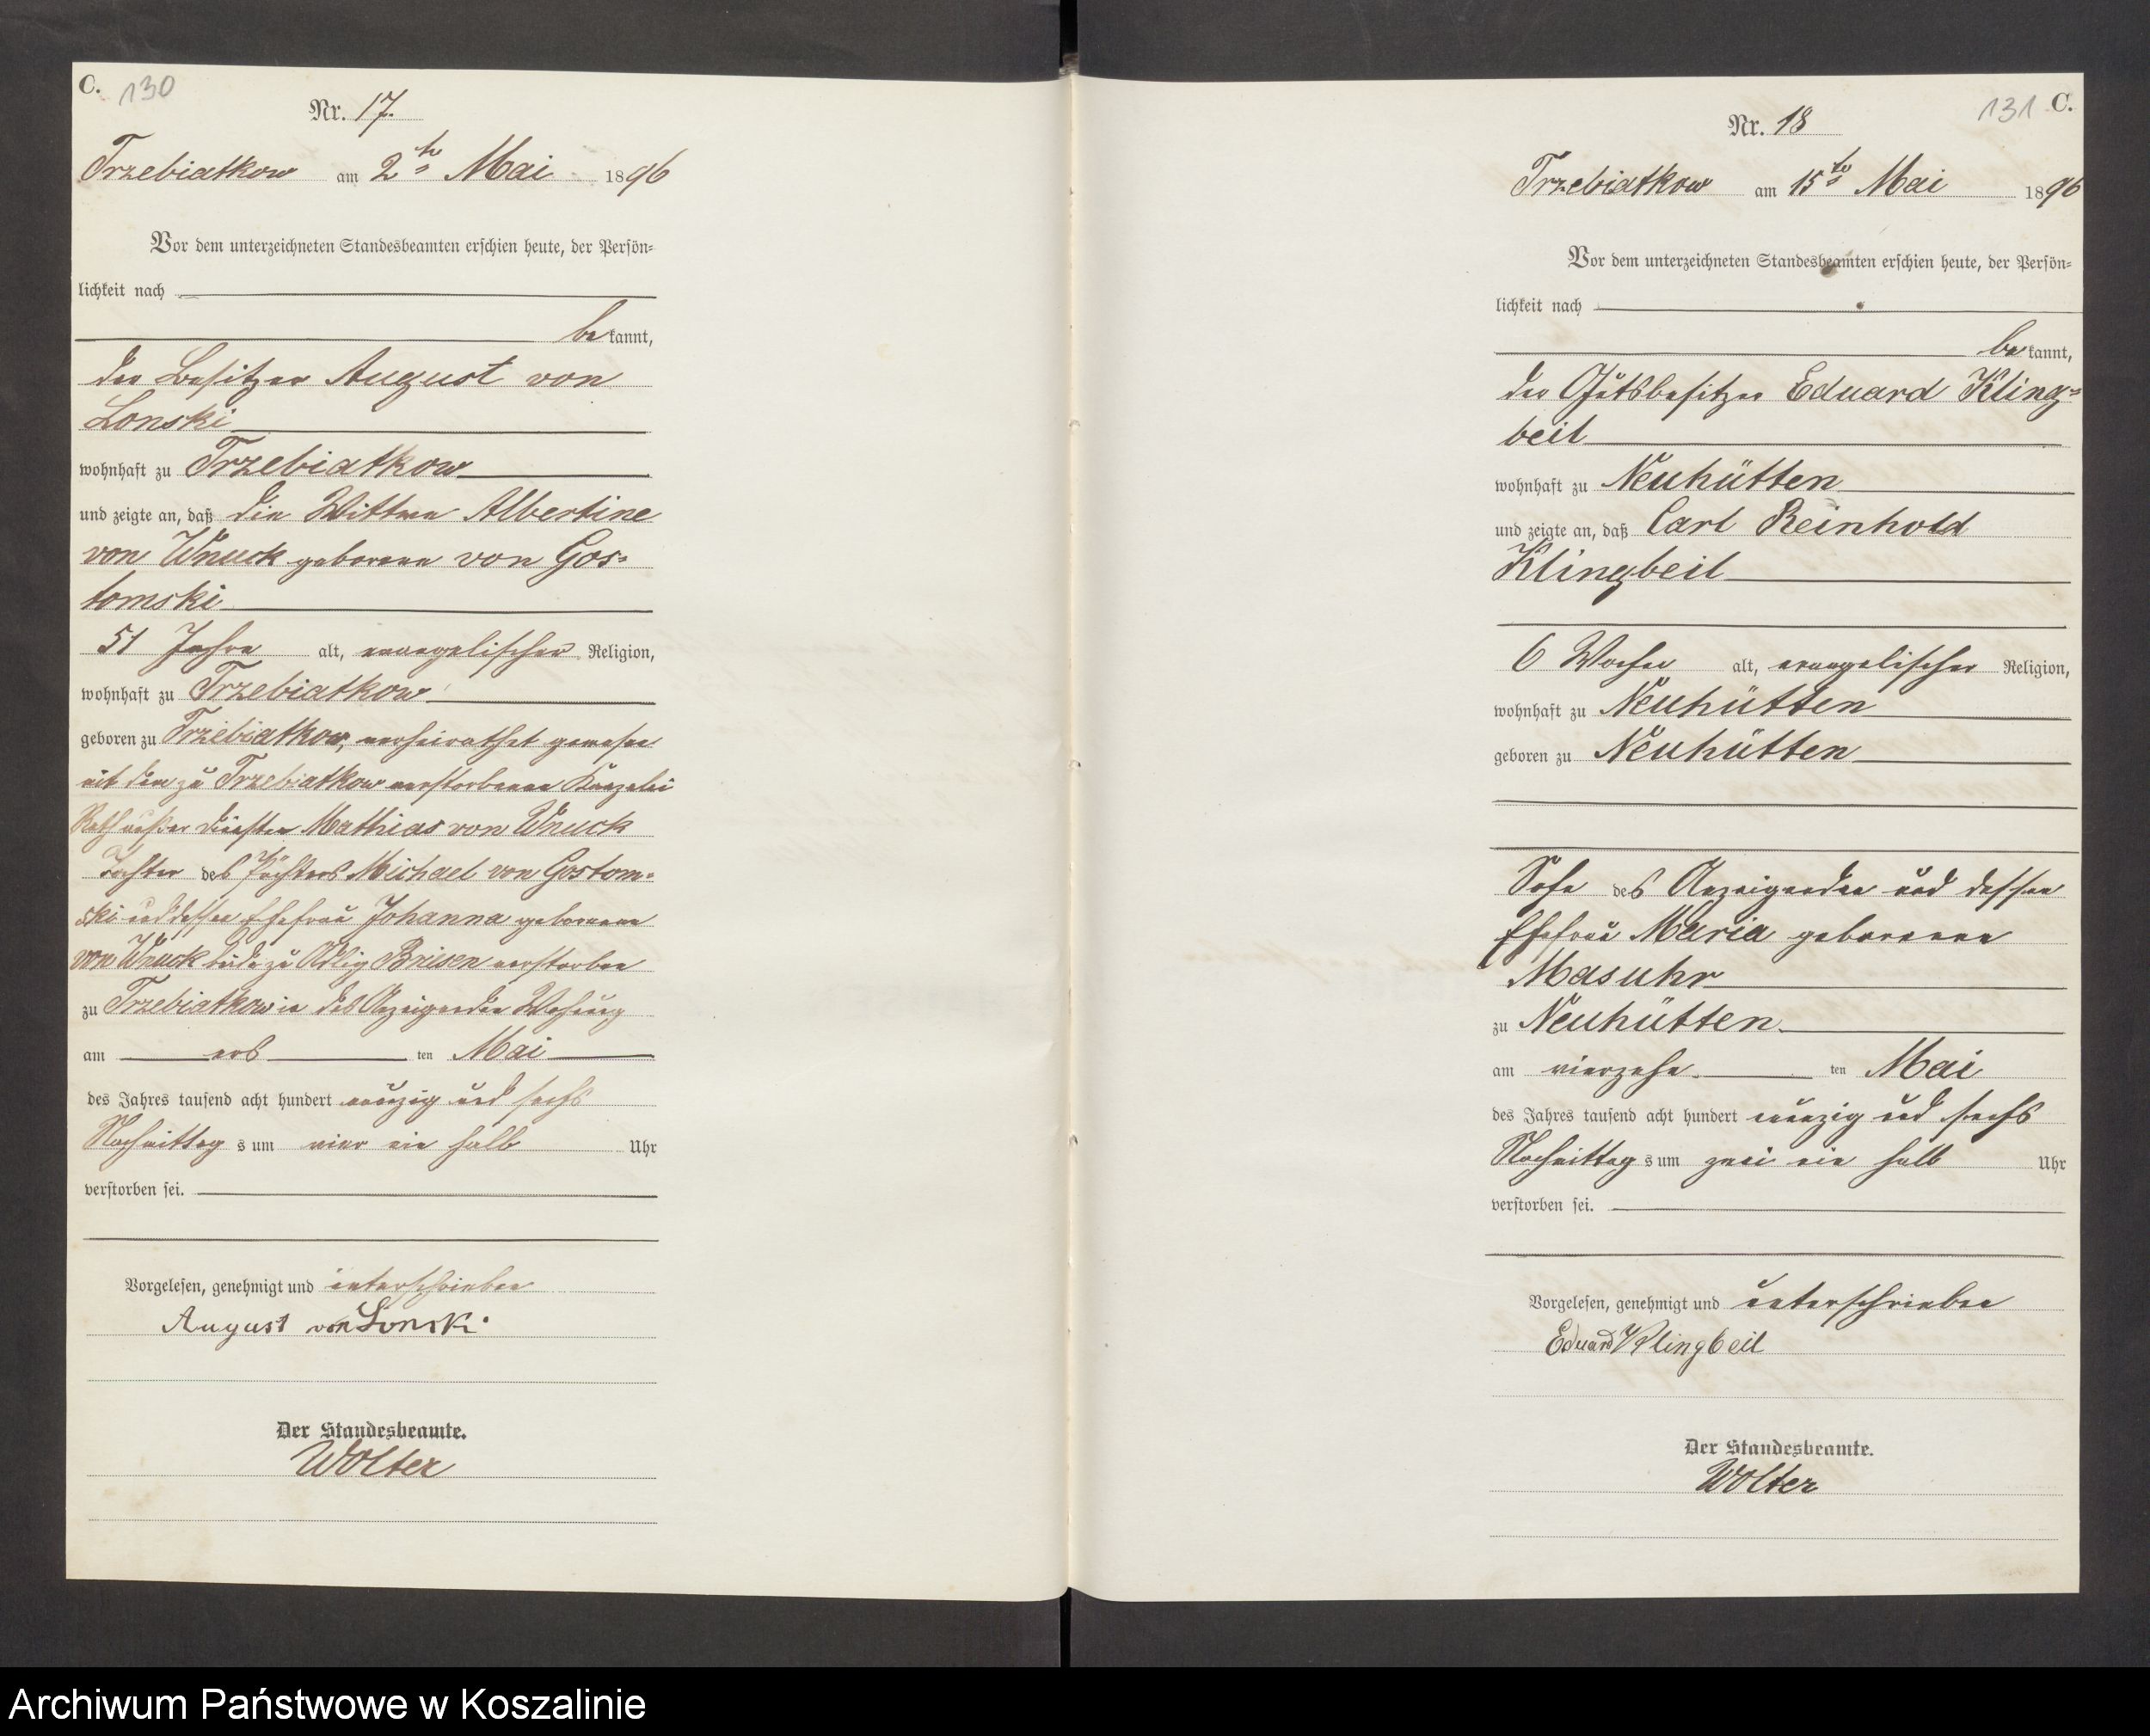 C. 130
Nr. 17.
Trzebiatkow am 2ten Mai 1896
Vor dem unterzeichneten Standesbeamten erschien heute, der Persön-
lichkeit nach
bekannt,
der Besitzer August von
Lonski
wohnhaft zu Trzebiatkow
und zeigte an, daß die Wittwe Albertine
von Wnuck geborene von Gos-
tomski
51 Jahre alt, evangelischer Religion,
wohnhaft zu Trzebiatkow
geboren zu Trzebiatkow, verheirathet gewesen
mit dem zu Trzebiatkow verstorbenen Kanzelei
Rath außer Diensten Mathias von Wnuck
Tochter des Pächters Michael von Gostom-
ski und dessen Ehefrau Johanna geborenen
von Wnuck beide zu Adlig Briesen verstorben
zu Trzebiatkow in des Anzeigenden Wohnung
am ersten Mai
des Jahres tausend acht hundert neunzig und sechs
Nachmittags um vier ein halb Uhr
verstorben sei.
Vorgelesen, genehmigt und unterschrieben
August von Lonski
Der Standesbeamte.
Wolter
131 C.
Nr. 18
Trzebiatkow am 15ten Mai 1896
Vor dem unterzeichneten Standesbeamten erschien heute, der Persön-
lichkeit nach
bekannt,
der Gutsbesitzer Eduard Kling-
beil
wohnhaft zu Neuhütten
und zeigte an, daß Carl Reinhold
Klingbeil
6 Wochen alt, evangelischer Religion,
wohnhaft zu Neuhütten
geboren zu Neuhütten
Sohn des Anzeigenden und dessen
Ehefrau Maria geborenen
Masuhr
zu Neuhütten
am vierzehnten Mai
des Jahres tausend acht hundert neunzig und sechs
Nachmittags um zwei ein halb Uhr
verstorben sei.
Vorgelesen, genehmigt und unterschrieben
Eduard Klingbeil
Der Standesbeamte.
Wolter
Archiwum Państwowe w Koszalinie